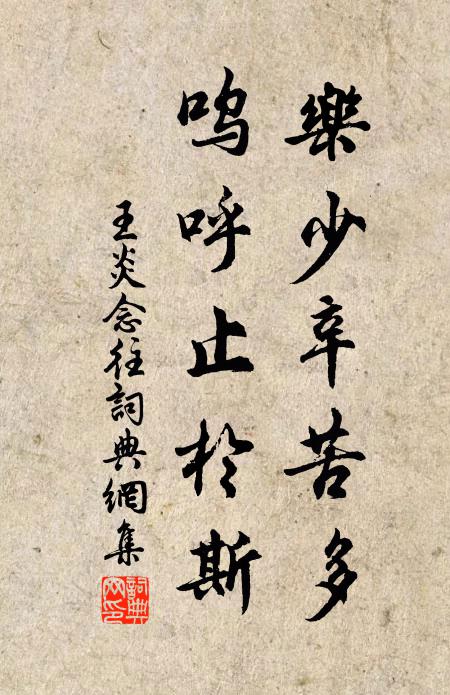 樂少辛苦多
嗚呼止於斯
王炎念往詞典網集
詞典網印